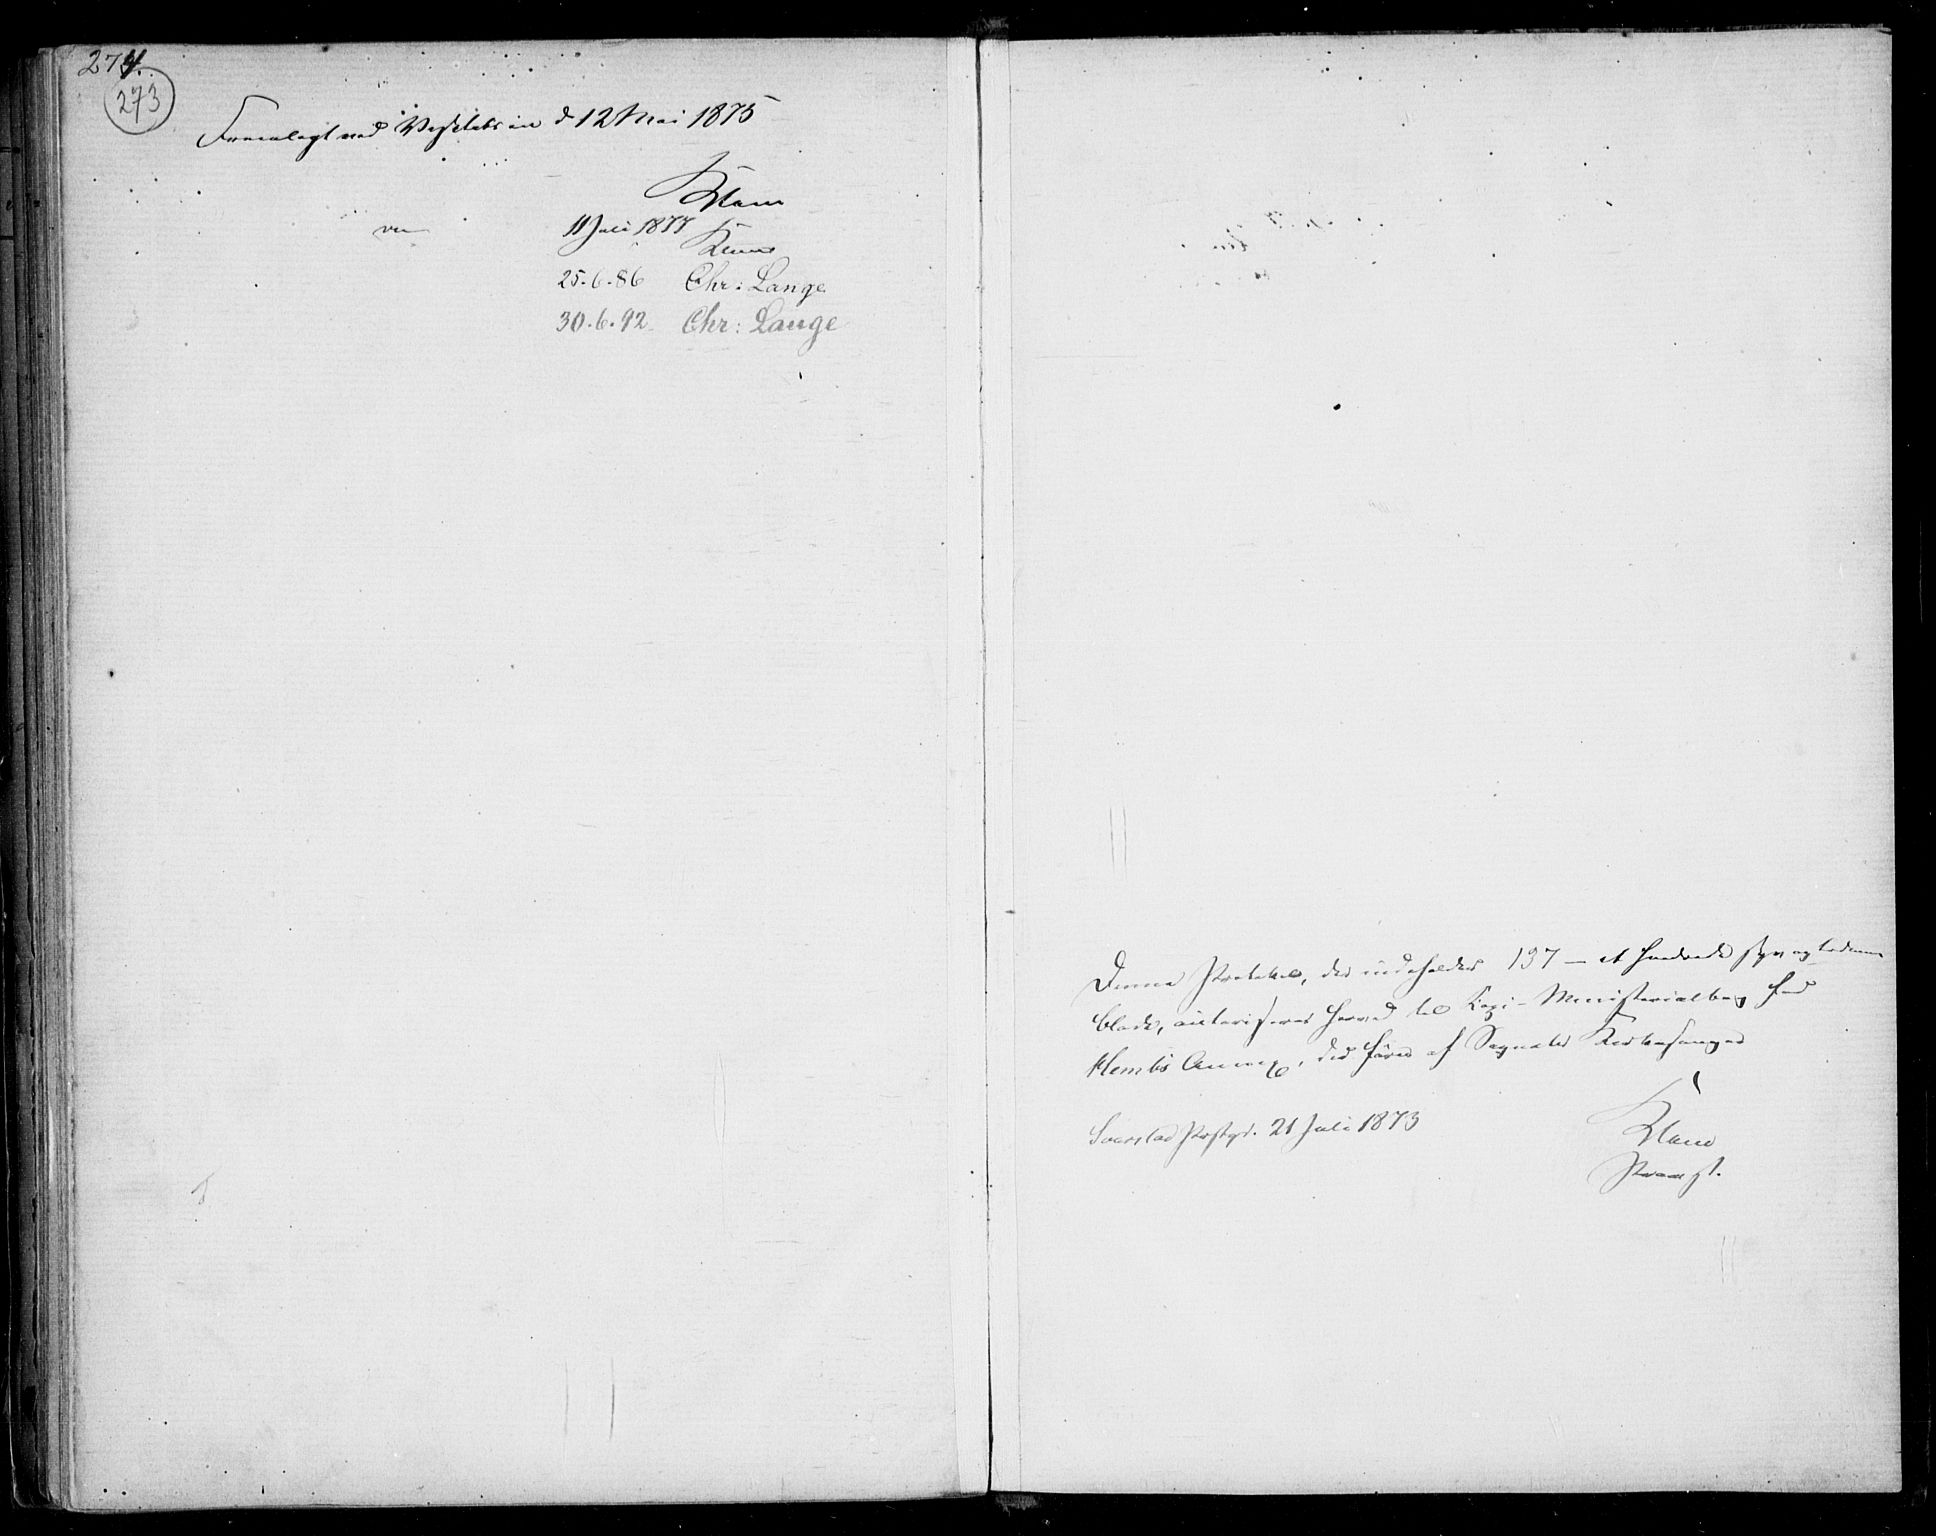 274.
273
Fremlagt ved Visitatsen d 12 Mai 1875
Klem
11 Juli 1877
Klem
25.6.86 Chr: Lange
30.6.92. Chr: Lange
Denne Protokol, der indeholder 137 – et hundrede syv og tredive
Blade, autoriseres herved til Kopi-Ministerialbog for
Hems Annex, der føres af Sognets Kirkesanger
Svarstad Prstgd. 21 Juli 1873
Klem
Provst.